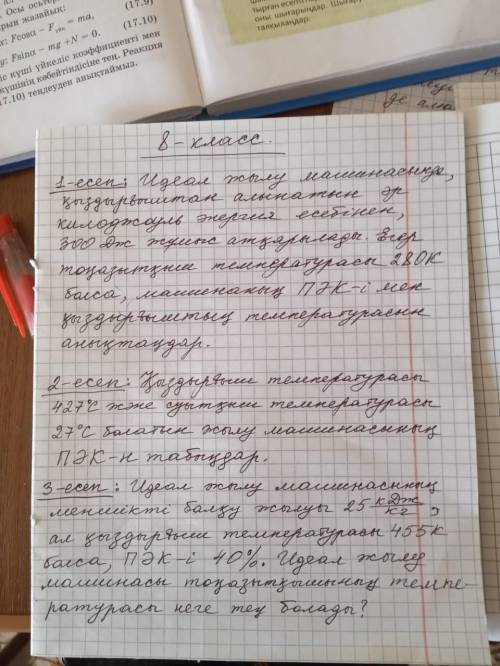 . Осы осьтер
рын жалайык:
(17.9)
x: Fcosα – Fүйк = ma,
(17.10)
y: Fsinα – mg + N = 0.
іс күші үйкеліс коэффициенті мен
күшінің көбейтіндісіне тең. Реакция
17.10) теңдеуден анықтаймыз.
тырған есепт
оны шығарыңдар. Шығару
талқылаңдар.
8-класс.
1-есеп: Идеал жылу машинасында,
қыздырғыштан алынатын әр
килоджоуль энергия есебінен,
300 Дж жұмыс атқарылады. Егер
тоңазытқыш температурасы 280К
болса, машинаның ПӘК-і мен
қыздырғыштың температурасын
анықтаңдар.
2-есеп: Қыздырғыш температурасы
427°С және суытқыш температурасы
27°С болатын жылу машинасының
ПӘК-н табыңдар.
3-есеп: Идеал жылу машинасының
меншікті балқу жылуы 25 кДж/кг,
ал қыздырғыш температурасы 455К
болса, ПӘК-і 40%. Идеал жылу
машинасы тоңазытқышының темпе-
ратурасы неге тең болады?